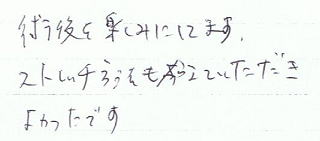 術後を楽しみにしてます。
ストレッチ方法も教えていただき
よかったです